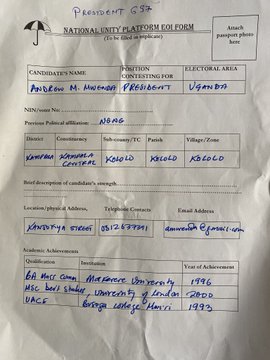 PRESIDENT
NATIONAL UNITY PLATFORM EOI FORM
(To be filled in triplicate)
Attach
passport photo
here
CANDIDATE'S NAME POSITION CONTESTING FOR ELECTORAL AREA
ANDREW M. MWENDA PRESIDENT UGANDA
NIN/voter No:
Previous Political affiliation: NONE
District Constituency Sub-county/TC Parish Village/Zone
KAMPALA KAMPALA CENTRAL KOLOLO KOLOLO KOLOLO
Brief description of candidate's strength
Location/physical Address, Telephone Contacts Email Address
STREET
Academic Achievements
Qualification Institution Year of Achievement
BA Mass Comm Makerere University 1996
MSC Devt Studies, University of London 2000
UACE Busoga College Mwiri 1993